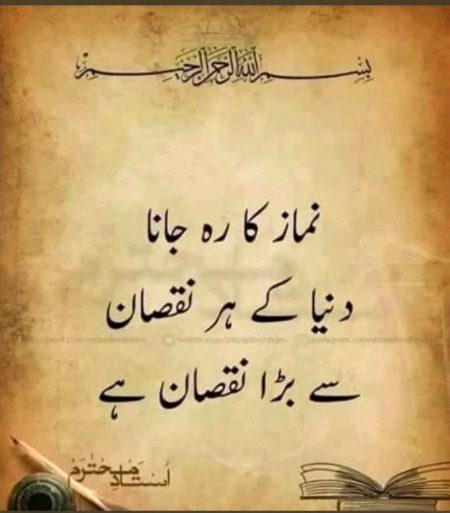 بسم اللہ الرحمن الرحیم
نماز کا رہ جانا
دنیا کے ہر نقصان
سے بڑا نقصان ہے
استادِ محترم